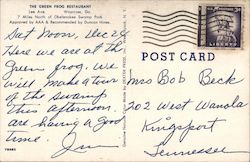 THE GREEN FROG RESTAURANT
Lee Ave. Waycross, Ga.
7 Miles North of Okefenokee Swamp Park
Approved by AAA & Recommended by Duncan Hines
Sat Noon, Dec 26
Here we are at the
Green frog. We
will make a tour
of the swamp
this afternoon.
are having a good
time. Jim
POST CARD
Mrs Bob Beck
202 West Wanola
Kingsport
Tennessee
LIBERTY